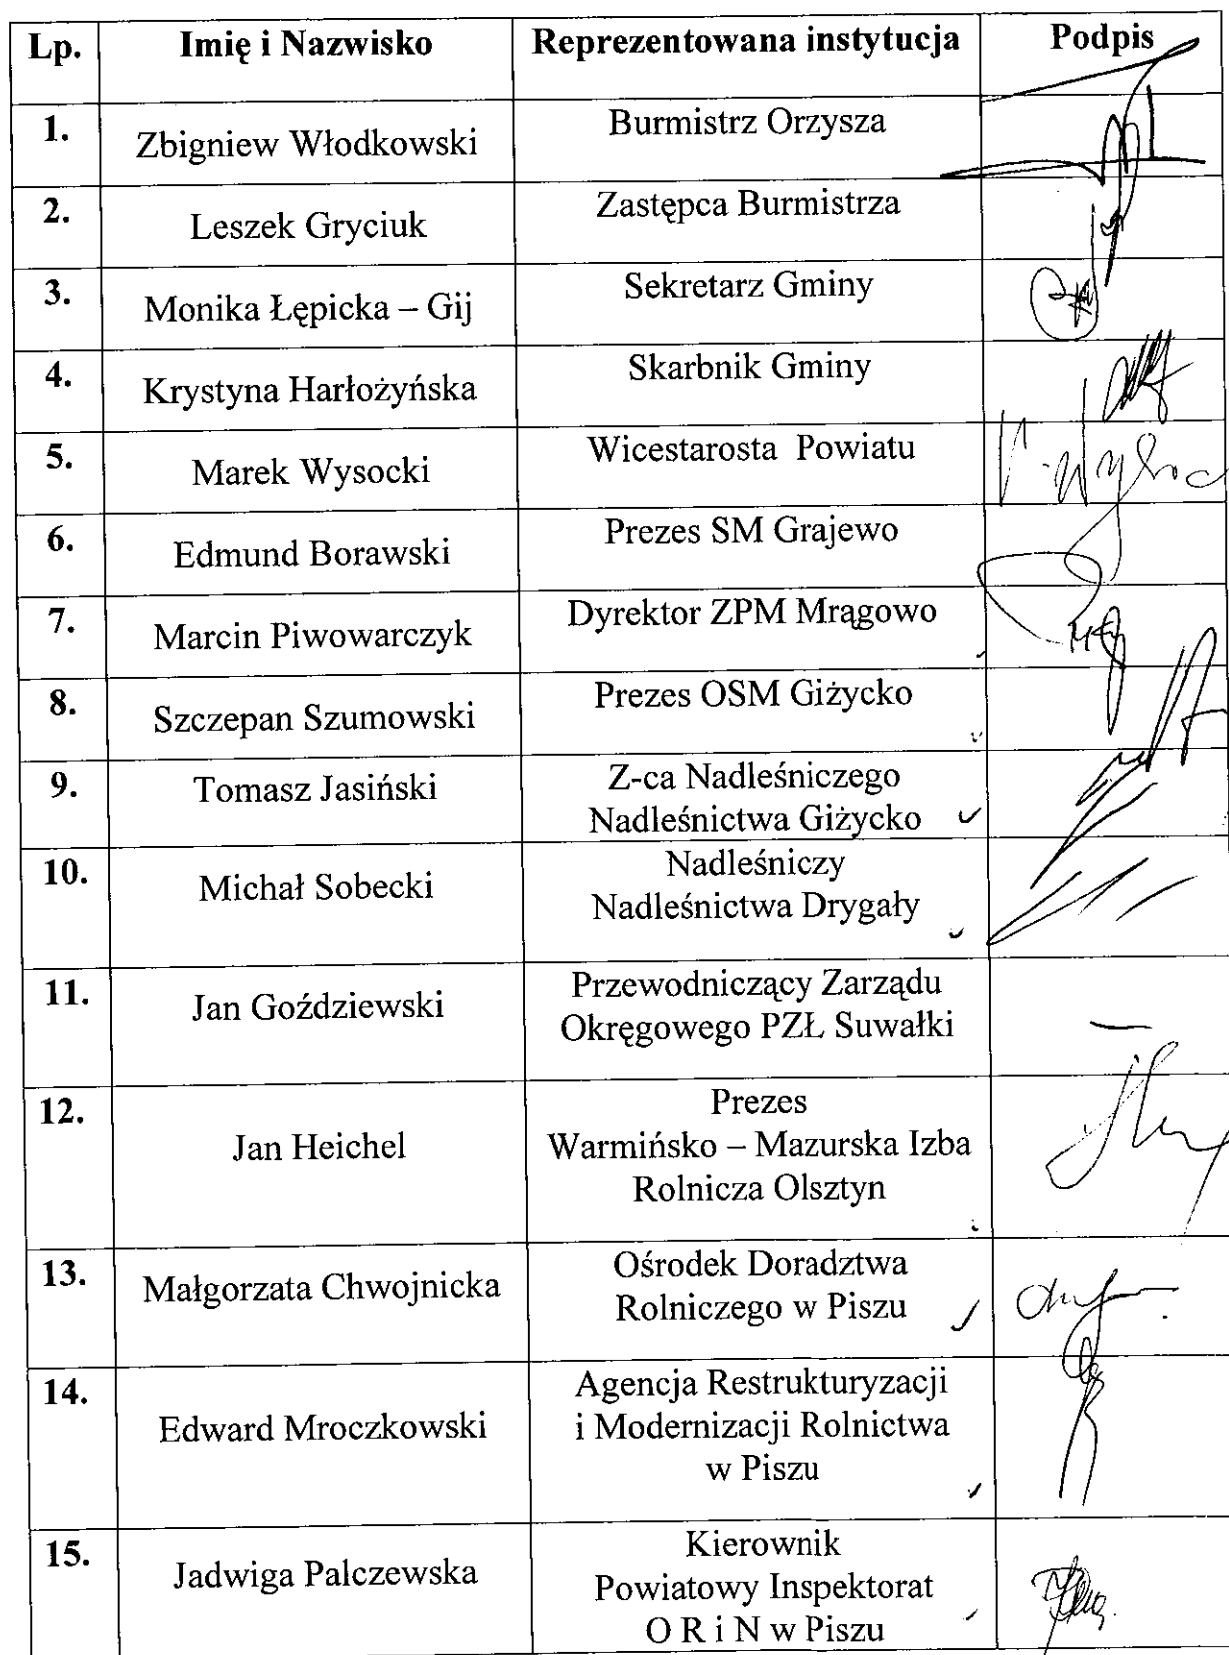 Lp. Imię i Nazwisko Reprezentowana instytucja Podpis
1. Zbigniew Włodkowski Burmistrz Orzysza
2. Leszek Gryciuk Zastępca Burmistrza
3. Monika Łępicka – Gij Sekretarz Gminy
4. Krystyna Harłożyńska Skarbnik Gminy
5. Marek Wysocki Wicestarosta Powiatu
6. Edmund Borawski Prezes SM Grajewo
7. Marcin Piwowarczyk Dyrektor ZPM Mrągowo
8. Szczepan Szumowski Prezes OSM Giżycko
9. Tomasz Jasiński Z-ca Nadleśniczego
Nadleśnictwa Giżycko
10. Michał Sobecki Nadleśniczy
Nadleśnictwa Drygały
11. Jan Goździewski Przewodniczący Zarządu
Okręgowego PZŁ Suwałki
12. Jan Heichel Prezes
Warmińsko – Mazurska Izba
Rolnicza Olsztyn
13. Małgorzata Chwojnicka Ośrodek Doradztwa
Rolniczego w Piszu
14. Edward Mroczkowski Agencja Restrukturyzacji
i Modernizacji Rolnictwa
w Piszu
15. Jadwiga Palczewska Kierownik
Powiatowy Inspektorat
O R i N w Piszu